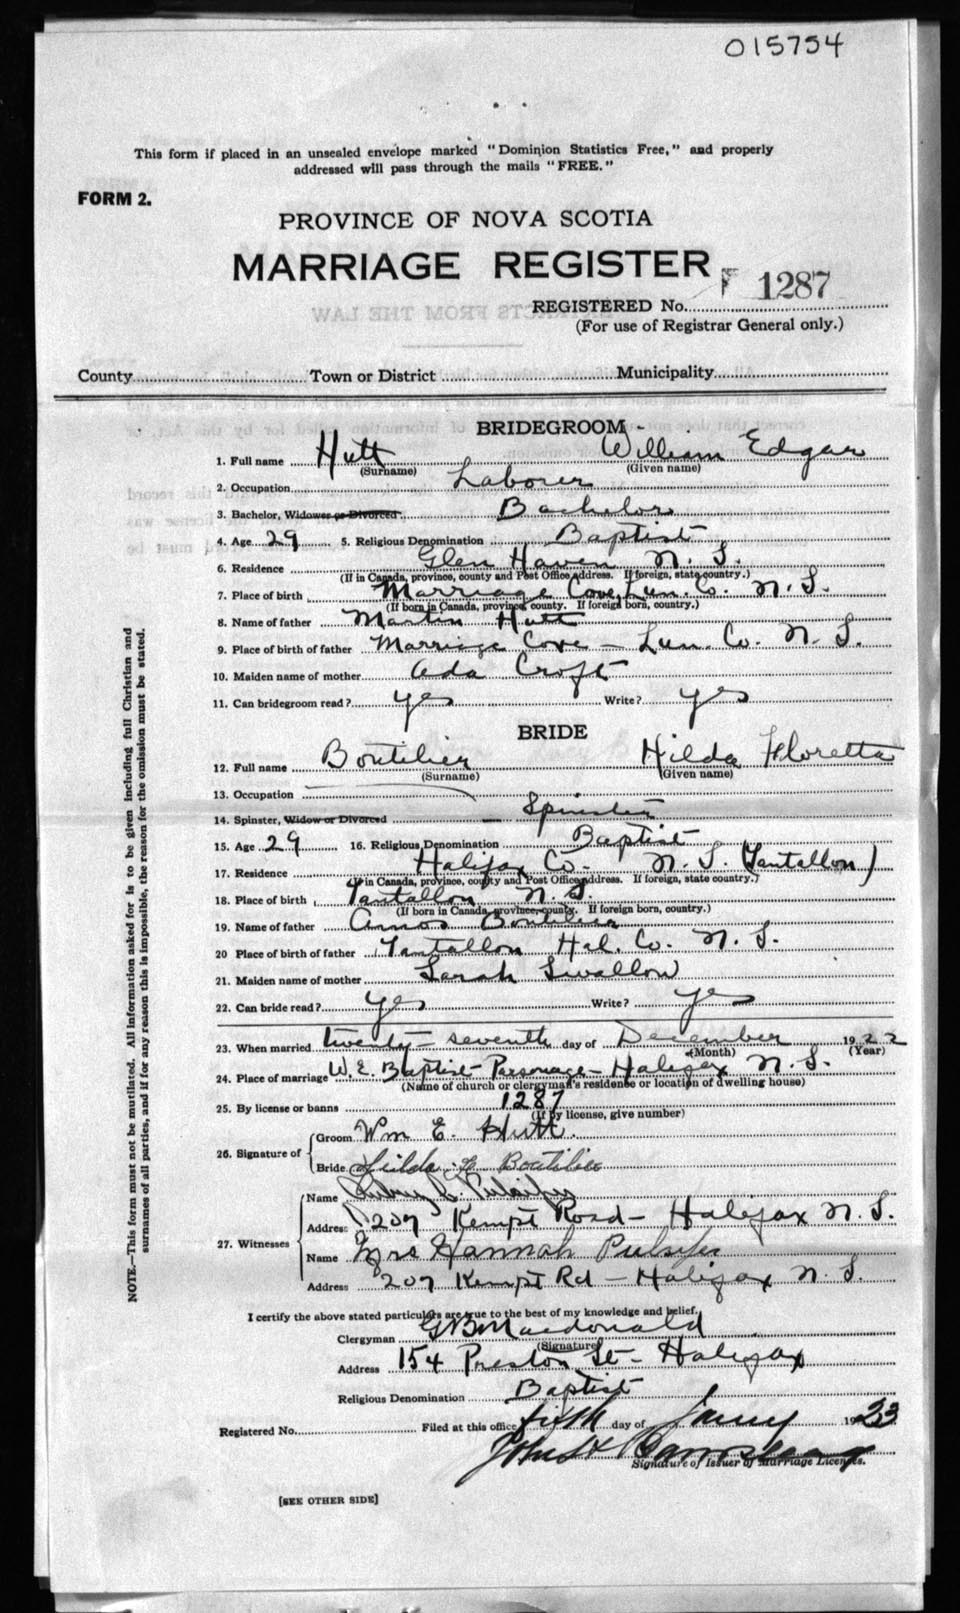 015754
This form if placed in an unsealed envelope marked "Dominion Statistics Free," and properly
addressed will pass through the mails "FREE."
FORM 2.
PROVINCE OF NOVA SCOTIA
MARRIAGE REGISTER
REGISTERED No. F 1287
(For use of Registrar General only.)
County Town or District Municipality
BRIDEGROOM
1. Full name Hutt William Edgar
(Surname) (Given name)
2. Occupation Laborer
3. Bachelor, Widower or Divorced Bachelor
4. Age 29 5. Religious Denomination Baptist
6. Residence Glen Haven N. S.
(If in Canada, province, county and Post Office Address. If foreign, state country.)
7. Place of birth Marriage Cove, Lun. Co. N. S.
(If born in Canada, province, county. If foreign born, country.)
8. Name of father Martin Hutt
9. Place of birth of father Marriage Cove - Lun. Co. N. S.
10. Maiden name of mother Ada Croft
11. Can bridegroom read? yes Write? yes
BRIDE
12. Full name Boutilier Hilda Floretta
(Surname) (Given name)
13. Occupation
14. Spinster, Widow or Divorced - Spinster
15. Age 29 16. Religious Denomination Baptist
17. Residence Halifax Co. N. S. (Tantallon)
(If in Canada, province, county and Post Office Address. If foreign, state country.)
18. Place of birth Tantallon N. S.
(If born in Canada, province, county. If foreign born, country.)
19. Name of father Amos Boutilier
20 Place of birth of father Tantallon Hal. Co. N. S.
21. Maiden name of mother Sarah Swallow
22. Can bride read? yes Write? yes
23. When married twenty-seventh day of December 1922
(Month) (Year)
24. Place of marriage W. E. Baptist Parsonage - Halifax N. S.
(Name of church or clergyman's residence or location of dwelling house)
25. By license or banns 1287
(If by license, give number)
26. Signature of
Groom Wm E. Hutt.
Bride Hilda F Boutilier
27. Witnesses
Name Pulsifer
Address 207 Kempt Road - Halifax N. S.
Name Mrs Hannah Pulsifer
Address 207 Kempt Rd - Halifax N. S.
I certify the above stated particulars are true to the best of my knowledge and belief.
Clergyman G B Macdonald
(Signature)
Address 154 Preston St - Halifax
Religious Denomination Baptist
Registered No. Filed at this office fifth day of Jany 1923
John H
Signature of Issuer of Marriage Licenses.
[SEE OTHER SIDE]
NOTE.—This form must not be mutilated. All information asked for is to be given including full Christian and
surnames of all parties, and if for any reason this is impossible, the reason for the omission must be stated.